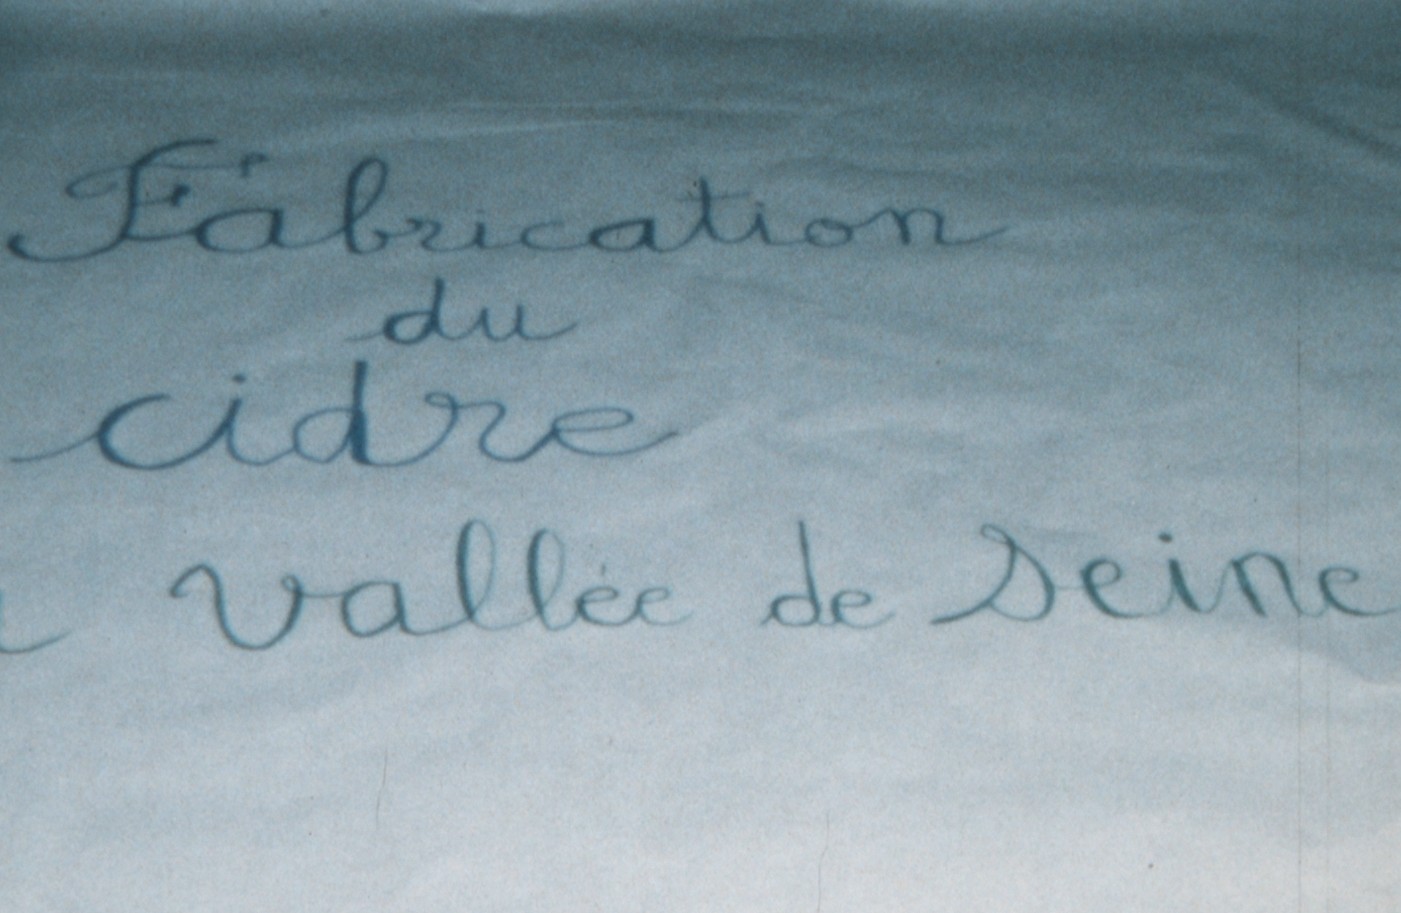 Fabrication
du
cidre
vallée de Seine